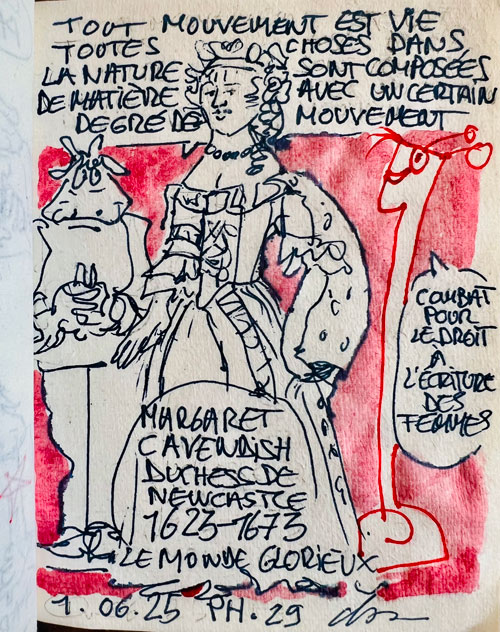 TOUT MOUVEMENT EST VIE
TOUTES CHOSES DANS
LA NATURE SONT COMPOSÉES
DE MATIÈRE AVEC UN CERTAIN
DEGRÉ DE MOUVEMENT
COMBAT
POUR
LE DROIT
A
L'ÉCRITURE
DES
FEMMES
MARGARET
CAVENDISH
DUCHESS DE
NEWCASTLE
1623-1673
LE MONDE GLORIEUX
1.06.25 PH.29